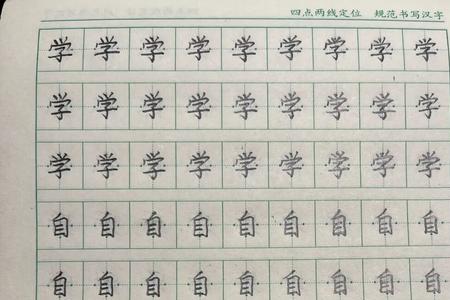 四点两线定位 规范书写汉字
学 学 学 学 学 学 学 学 学
学 学 学 学 学 学 学 学 学
学 学 学 学 学 学 学 学 学
自 自 自 自 自 自 自 自 自
自 自 自 自 自 自 自 自 自